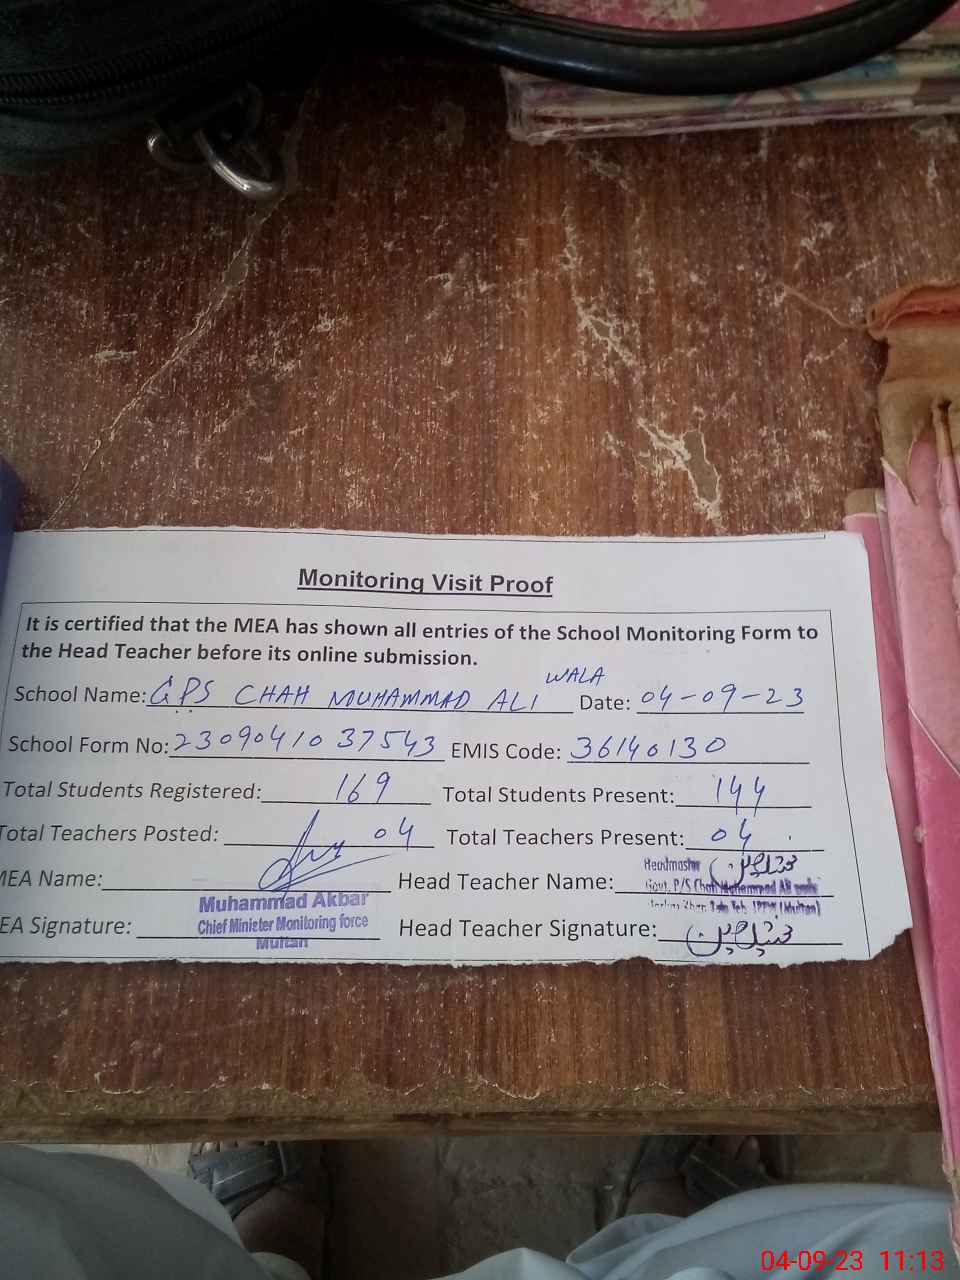 Monitoring Visit Proof
It is certified that the MEA has shown all entries of the School Monitoring Form to
the Head Teacher before its online submission.
School Name: GPS CHAH MUHAMMAD ALI WALA Date: 04-09-23
School Form No: 2309041037543 EMIS Code: 36140130
Total Students Registered: 169 Total Students Present: 144
Total Teachers Posted: 04 Total Teachers Present: 04
MEA Name: Head Teacher Name:
Headmaster
Govt. P/S Chah Muhammad Ali
(Multan)
EA Signature: Head Teacher Signature:
Muhammad Akbar
Chief Minister Monitoring force
Multan
04-09-23 11:13